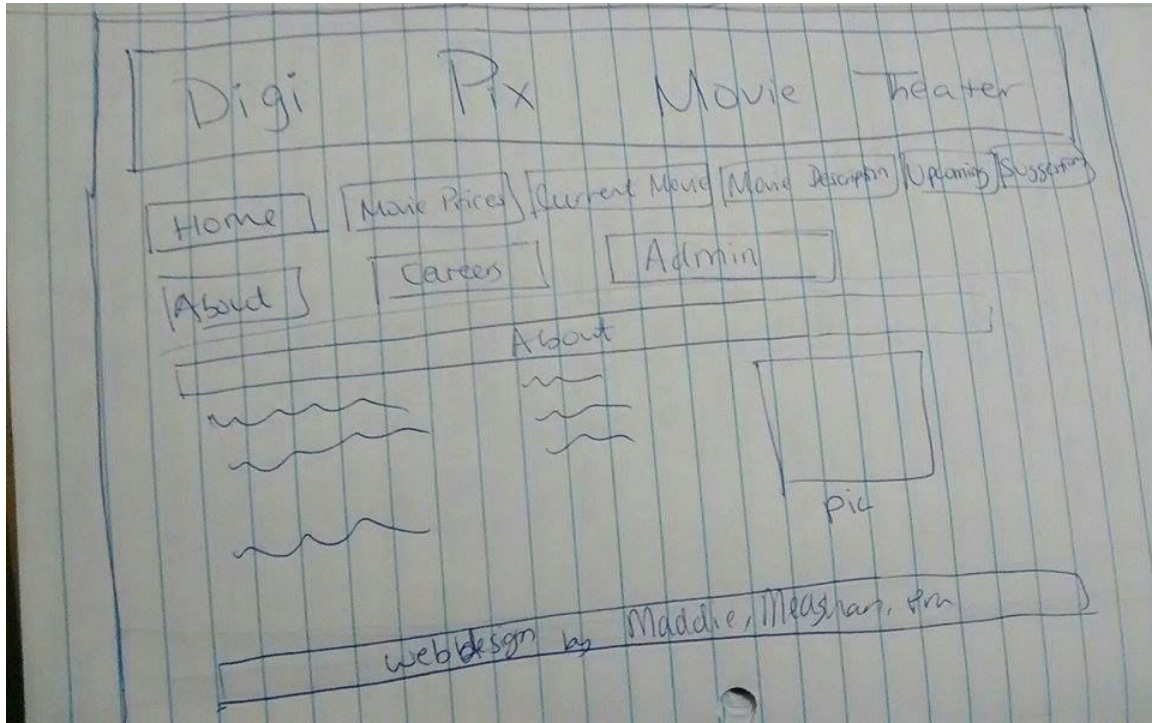 Digi Pix Movie Theater
Home Movie Prices Current Movie Movie Description Upcoming Suggestion
About Careers Admin
About
pic
webdesign by Maddie, Meaghan,